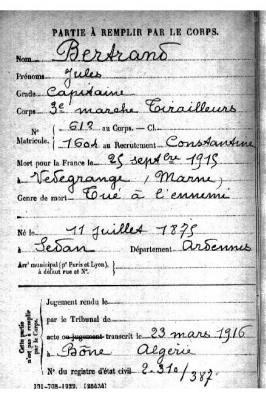 PARTIE À REMPLIR PAR LE CORPS.
Nom Bertrand
Prénoms Jules
Grade Capitaine
Corps 3e marche Tirailleurs
N° 612 au Corps. — Cl.
Matricule. 1601 au Recrutement Constantine
Mort pour la France le 25 septbre 1915
à Vedegrange (Marne)
Genre de mort Tué à l'ennemi
Né le 11 juillet 1875
à Sedan Département Ardennes
Arrt municipal (pr Paris et Lyon), à défaut rue et N°.
Cette partie n'est pas à remplir par le Corps.
Jugement rendu le
par le Tribunal de
acte ou jugement transcrit le 23 mars 1916
à Bône Algérie
N° du registre d'état civil 2.310/387
101-708-1922. [26434]